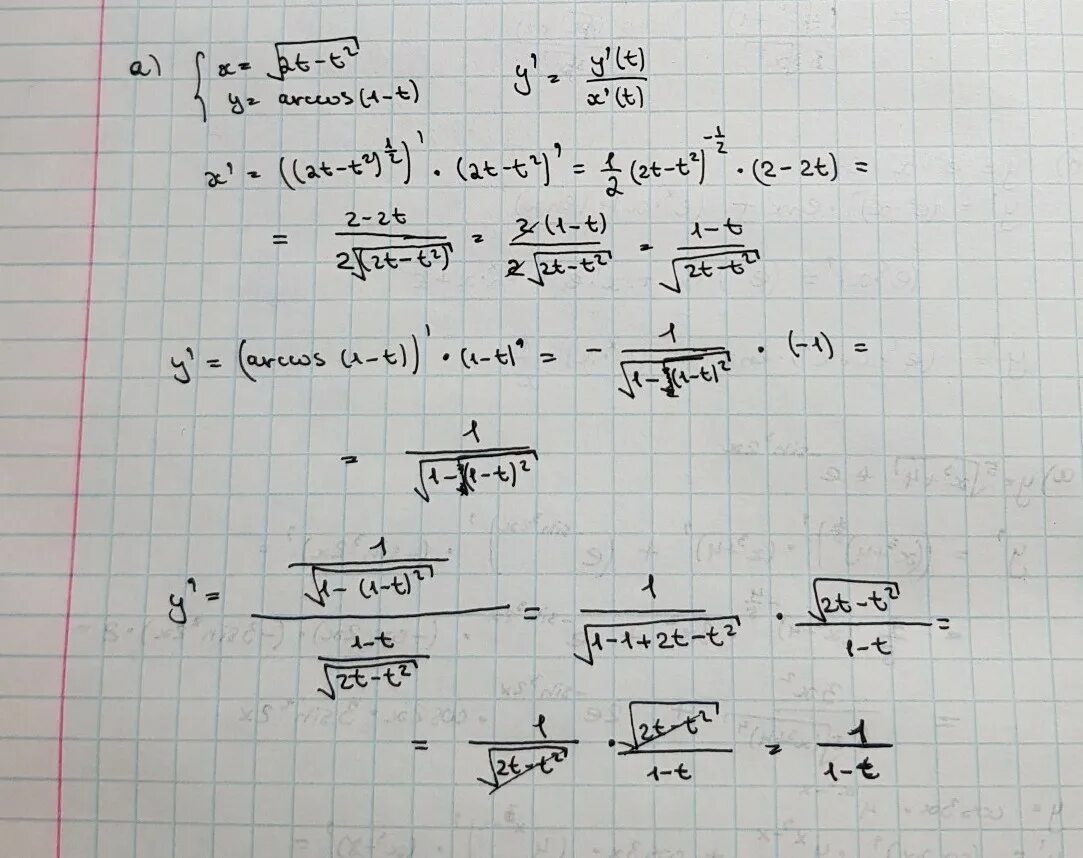 а) { x = √(2t-t²)   y' = y'(t) / x'(t)
y = arccos(1-t)
x' = ((2t-t²)^(1/2))' · (2t-t²)' = 1/2 (2t-t²)^(-1/2) · (2-2t) =
= (2-2t) / (2√(2t-t²)) = 2(1-t) / (2√(2t-t²)) = (1-t) / √(2t-t²)
y' = (arccos(1-t))' · (1-t)' = - 1/√(1-(1-t)²) · (-1) =
= 1/√(1-(1-t)²)
y' = (1/√(1-(1-t)²)) / ((1-t)/√(2t-t²)) = 1/√(1-1+2t-t²) · √(2t-t²)/(1-t) =
= 1/√(2t-t²) · √(2t-t²)/(1-t) = 1/(1-t)